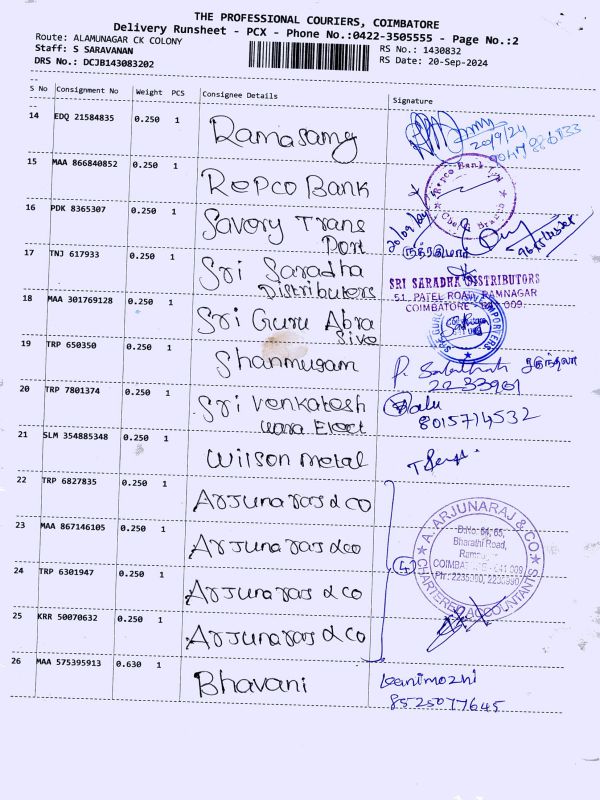 THE PROFESSIONAL COURIERS, COIMBATORE
Delivery Runsheet - PCX - Phone No.:0422-3505555 - Page No.:2
Route: ALAMUNAGAR CK COLONY
RS No.: 1430832
Staff: S SARAVANAN
RS Date: 20-Sep-2024
DRS No.: DCJB143083202
S No Consignment No Weight PCS Consignee Details Signature
14 EDQ 21584835 0.250 1 Ramasamy
20/9/24
15 MAA 866840852 0.250 1 Repco Bank
Repco Bank
Branch
16 PDK 8365307 0.250 1 Savory Trans
Port
20/09/24
17 TNJ 617933 0.250 1 Sri Saradha
Distributers
SRI SARADHA DISTRIBUTORS
51, PATEL ROAD, RAMNAGAR
COIMBATORE - 641 009.
18 MAA 301769128 0.250 1 Sri Guru Abra
Sive
19 TRP 650350 0.250 1 Shanmugam
2233961
20 TRP 7801374 0.250 1 Sri Venkatesh
wara Elect
Balu
8015714532
21 SLM 354885348 0.250 1 Wilson metal
22 TRP 6827835 0.250 1 Arjuna ras & co
23 MAA 867146105 0.250 1 Arjuna ras & co
24 TRP 6301947 0.250 1 Arjuna ras & co
25 KRR 50070632 0.250 1 Arjuna ras & co
4
A. ARJUNARAJ & CO.
CHARTERED ACCOUNTANTS
D.No. 64, 65,
Bharathi Road,
26 MAA 575395913 0.630 1 Bhavani
kanimozhi
8525077645